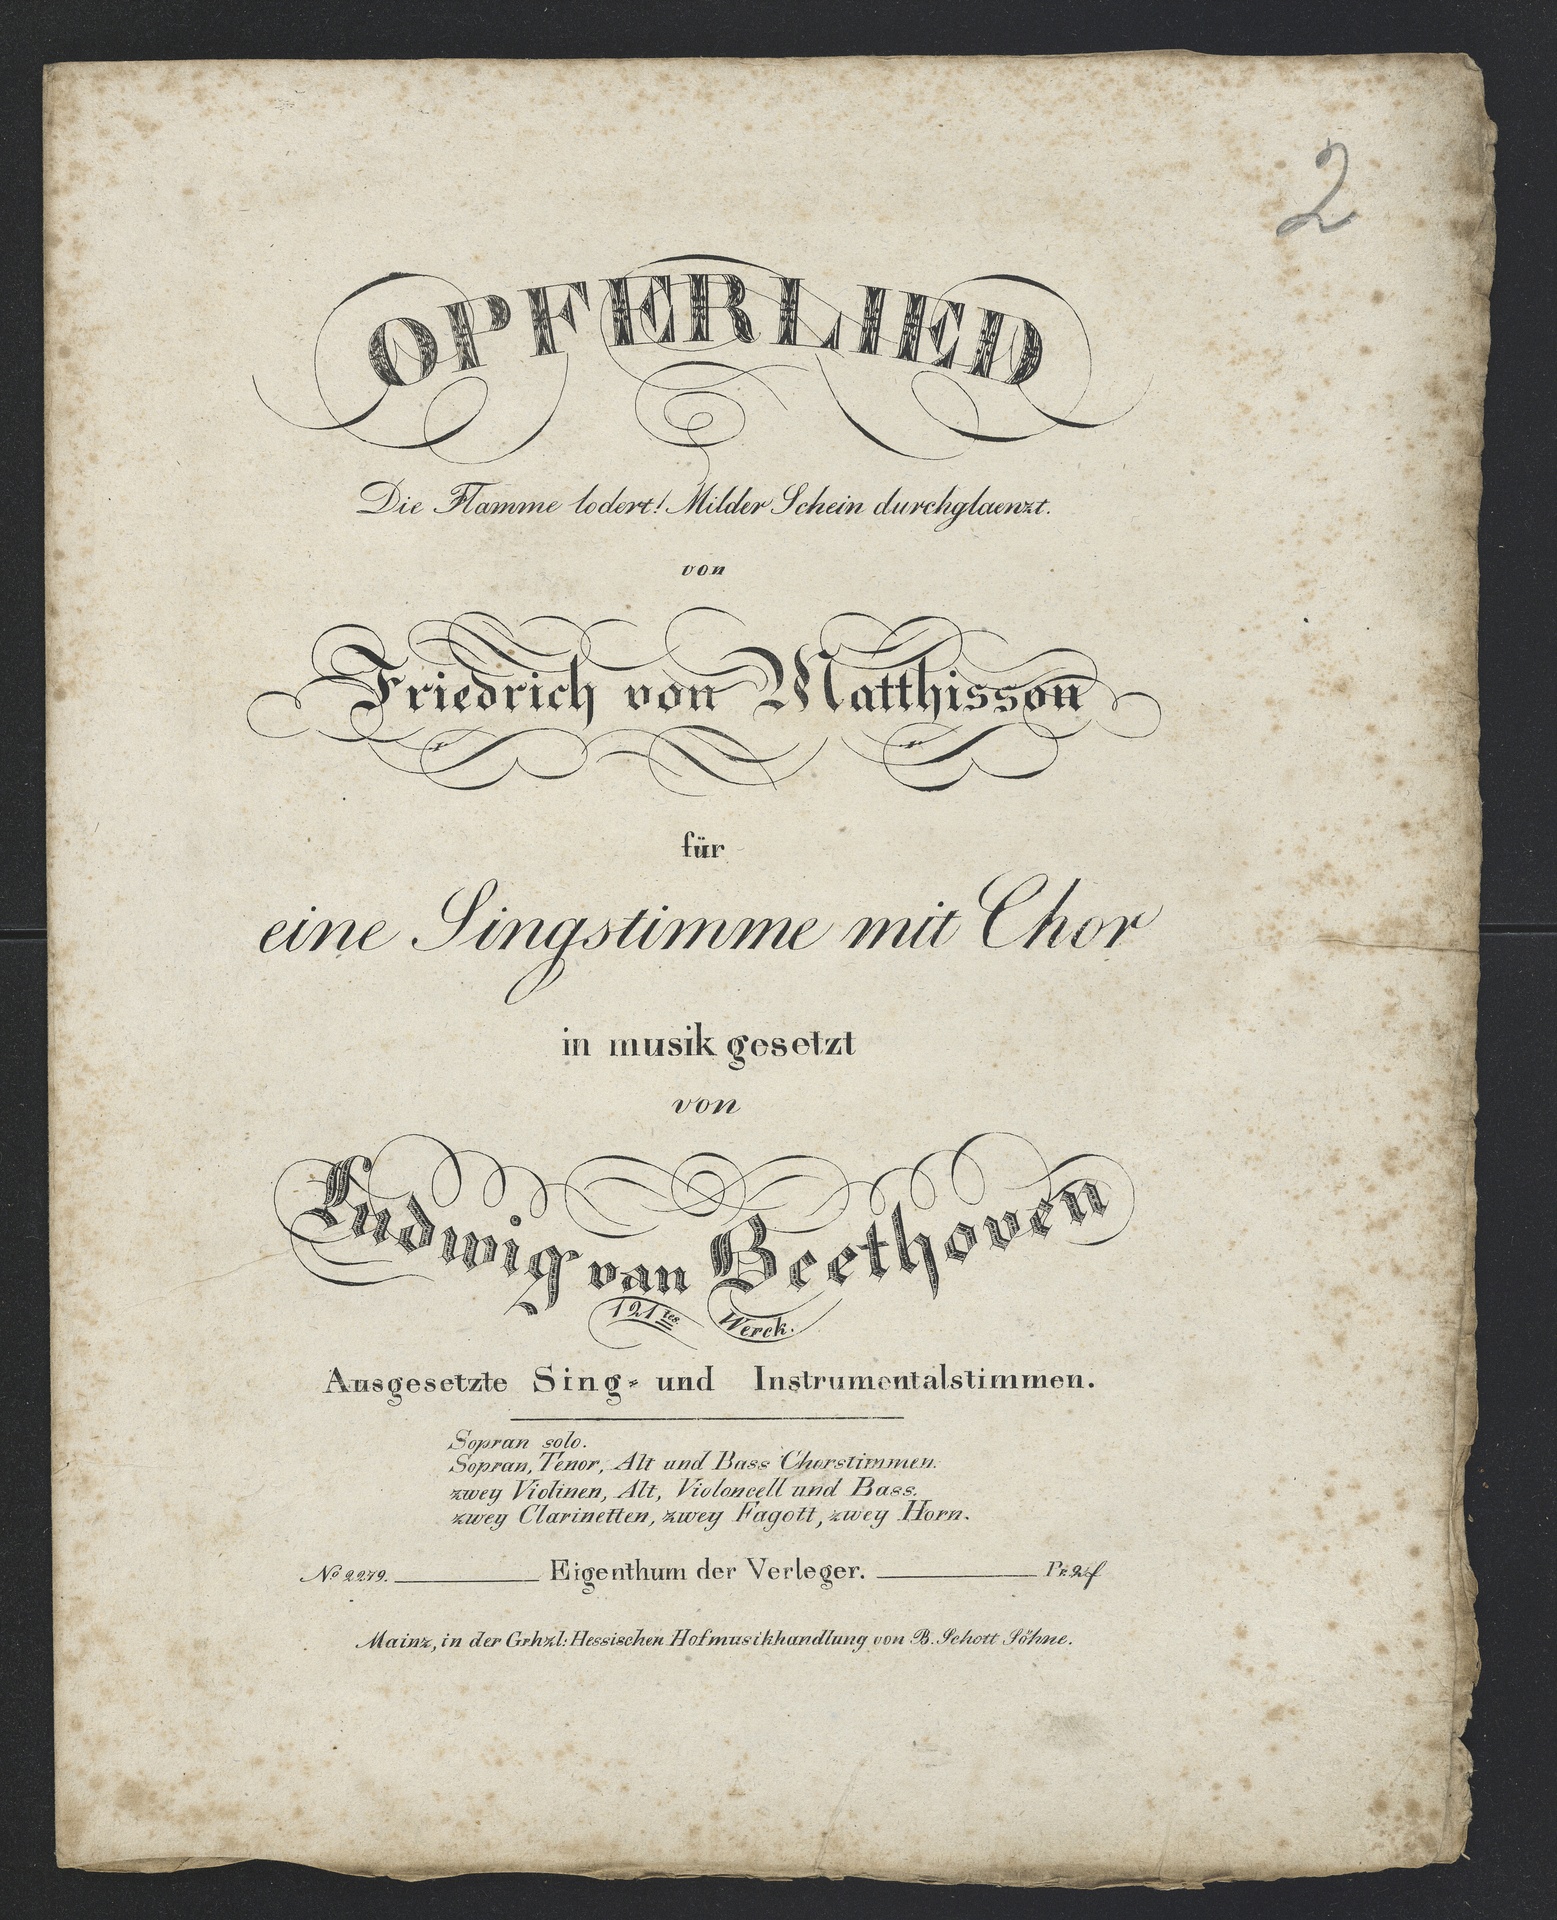 2
OPFERLIED
Die Flamme lodert! Milder Schein durchglaenzt.
von
Friedrich von Matthisson
für
eine Singstimme mit Chor
in musik gesetzt
von
Ludwig van Beethoven
121tes Werck.
Ausgesetzte Sing= und Instrumentalstimmen.
Sopran solo.
Sopran, Tenor, Alt und Bass Chorstimmen.
zwey Violinen, Alt, Violoncell und Bass.
zwey Clarinetten, zwey Fagott, zwey Horn.
No 2279. Eigenthum der Verleger. Pr.
Mainz, in der Grhzl: Hessischen Hofmusikhandlung von B. Schott Söhne.